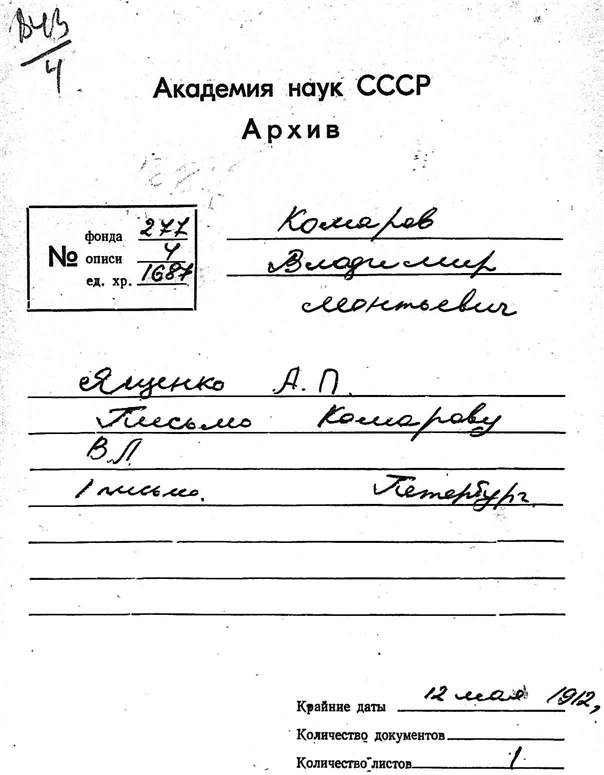 ВЧЗ
4
Академия наук СССР
Архив
№ фонда 277
описи 4
ед. хр. 1687
Комаров
Владимир
Леонтьевич
Ященко А. П.
Письмо Комарову
В Л
1 письмо. Петербург.
Крайние даты 12 мая 1912,
Количество документов
Количество листов 1